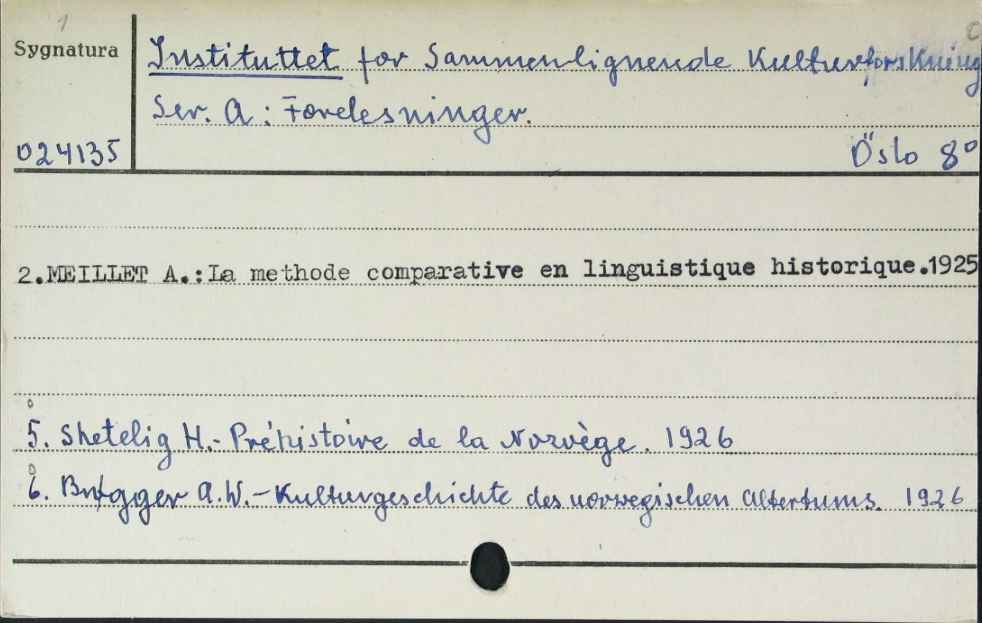 1
Sygnatura
Instituttet for Sammenlignende Kulturforskning
Ser. A : Forelesninger.
024135
Öslo 8°
2.MEILLET A.:La methode comparative en linguistique historique.1925
5. Shetelig H.- Préhistoire de la Norvège. 1926
6. Brøgger A.W.- Kulturgeschichte des norwegischen Altertums. 1926